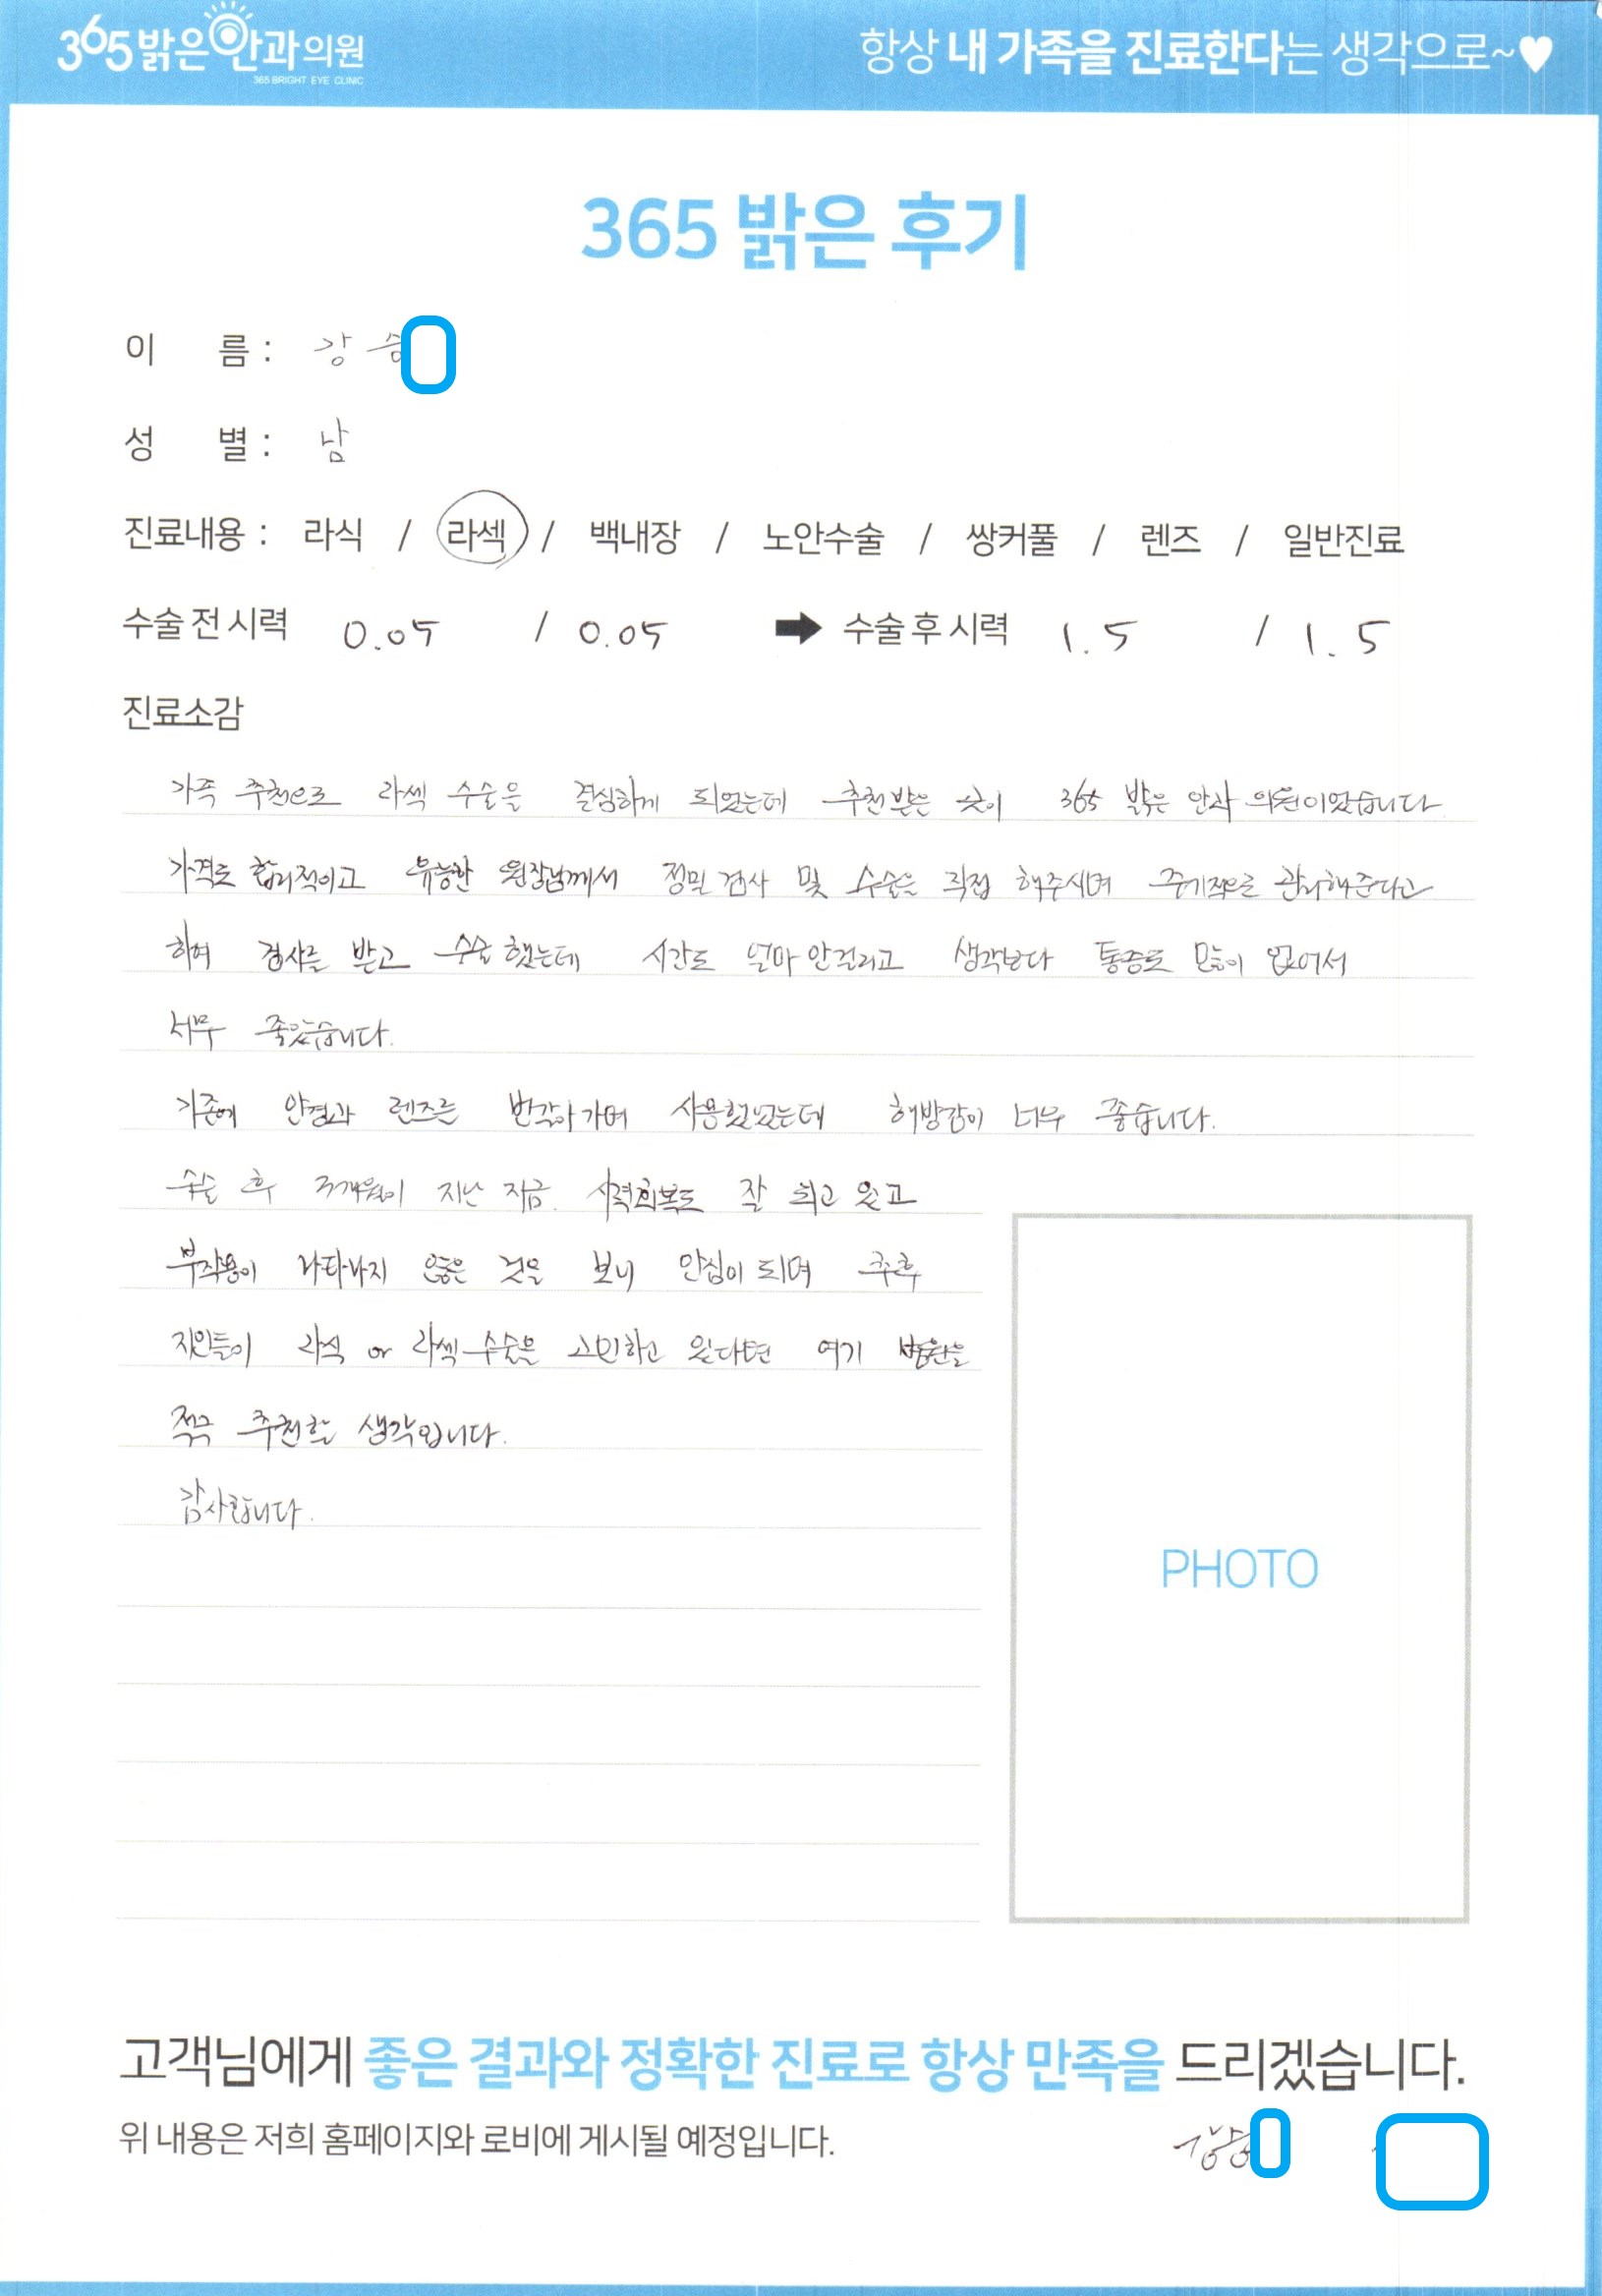 365 밝은안과의원
365 BRIGHT EYE CLINIC
항상 내 가족을 진료한다는 생각으로~♥
365 밝은 후기
이 름 : 강 승
성 별 : 남
진료내용 : 라식 / 라섹 / 백내장 / 노안수술 / 쌍커풀 / 렌즈 / 일반진료
수술 전 시력 0.05 / 0.05 ➡ 수술 후 시력 1.5 / 1.5
진료소감
가족 추천으로 라섹 수술을 결심하게 되었는데 추천받은 곳이 365 밝은 안과 의원이었습니다
가격도 합리적이고 유능한 원장님께서 정밀 검사 및 수술을 직접 해주시며 주기적으로 관리해준다고
하여 검사를 받고 수술했는데 시간도 얼마 안걸리고 생각보다 통증도 많이 없어서
너무 좋았습니다.
기존에 안경과 렌즈를 번갈아 가며 사용했었는데 해방감이 너무 좋습니다.
수술 후 3개월이 지난 지금 시력회복도 잘 되고 있고
부작용이 나타나지 않은 것을 보니 안심이 되며 추후
지인들이 라식 or 라섹 수술을 고민하고 있다면 여기 병원을
적극 추천할 생각입니다.
감사합니다.
PHOTO
고객님에게 좋은 결과와 정확한 진료로 항상 만족을 드리겠습니다.
위 내용은 저희 홈페이지와 로비에 게시될 예정입니다. 강승